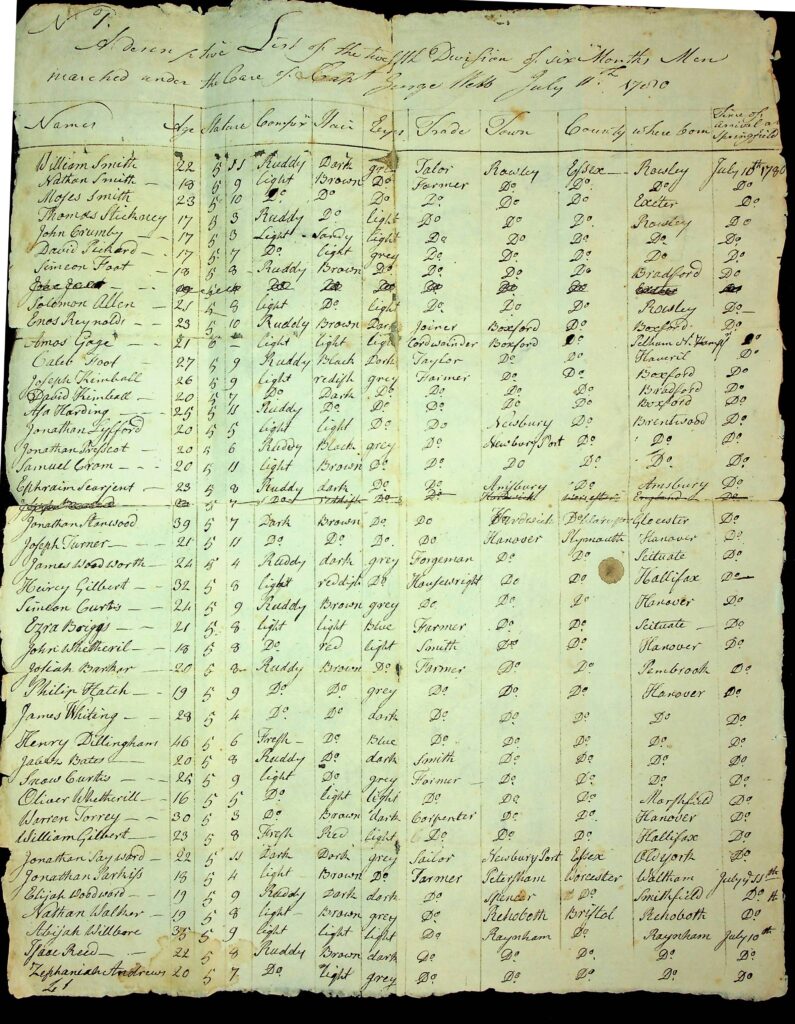 No 7.
A Descriptive List of the twelfth Division of six Months Men
marched under the Care of Capt George Webb July 11th 1780
Names Age Stature Complex Hair Eyes Trade Town County where born Time of arrival at Springfield
William Smith 22 5 11 Ruddy Dark grey Talor Rowley Essex Rowley July 10th 1780
Nathan Smith 18 5 9 light Brown Do Farmer Do Do Do Do
Moses Smith 23 5 10 Do Do Do Do Do Do Exeter Do
Thomas Stickney 17 5 3 Ruddy Do light Do Do Do Rowley Do
John Crumby 17 5 3 Light Sandy light Do Do Do Do Do
David Pickard 17 5 7 Do light grey Do Do Do Do Do
Simeon Foot 18 5 8 Ruddy Brown Do Do Do Do Bradford Do
Solomon Allen 21 5 8 light Do light Do Do Do Rowley Do
Enos Reynolds 23 5 10 Ruddy Brown Dark Joiner Boxford Do Boxford Do
Amos Gage 21 5 light light light Cordwainder Boxford Do Pelham N. Hamp Do
Caleb Foot 27 5 9 Ruddy Black Dark Taylor Do Do Haveril Do
Joseph Kemball 26 5 9 light redish grey Farmer Do Do Boxford Do
David Kemball 20 5 7 Do Dark Do Do Do Do Bradford Do
Asa Harding 25 5 11 Ruddy Do Do Do Do Do Boxford Do
Jonathan Lyfford 20 5 5 light light Do Do Newbury Do Brentwood Do
Jonathan Prescot 20 5 6 Ruddy Black grey Do Newbury Port Do Do Do
Samuel Crom 20 5 11 light Brown Do Do Do Do Do Do
Ephraim Searjent 23 5 8 Ruddy dark Do Do Amsbury Do Amsbury Do
5 7 Do reddish Do Do Hardwich Worcester England Do
Jonathan Stanwood 39 5 7 Dark Brown Do Do Hardwich Do Glocester Do
Joseph Turner 21 5 11 Do Do Do Do Hanover Plymouth Hanover Do
James Woodworth 24 5 4 Ruddy dark grey Forgeman Do Do Scituate Do
Gilbert 32 5 8 light reddish Do Housewright Do Do Hallifax Do
Simeon Curtis 24 5 9 Ruddy Brown grey Do Do Do Hanover Do
Ezra Briggs 21 5 8 light light Blue Farmer Do Do Scituate Do
John Whetheril 18 5 8 Do red light Smith Do Do Hanover Do
Josiah Barker 20 5 8 Ruddy Brown Do Farmer Do Do Pembrook Do
Philip Hatch 19 5 9 Do Do grey Do Do Do Hanover Do
James Whiting 28 5 4 Do Do dark Do Do Do Do Do
Henry Dillingham 46 5 6 Fresh Do Blue Do Do Do Do Do
Jabesh Bates 20 5 8 Ruddy Do dark Smith Do Do Do Do
Snow Curtis 25 5 9 light Do grey Farmer Do Do Do Do
Oliver Whetherill 16 5 5 Do light light Do Do Do Marshfield Do
Warren Torrey 30 5 3 Do Brown dark Carpenter Do Do Hanover Do
William Gilbert 23 5 8 Fresh Red light Do Do Do Hallifax Do
Jonathan Sayward 22 5 11 Dark Dark grey Sailor Newbury Port Essex Old york Do
Jonathan Parkiss 18 5 4 light Brown Do Farmer Petersham Worcester Waltham July 11th
Elijah Woodward 19 5 9 Ruddy Dark dark Do Spencer Do Smithfield Do
Nathan Walker 19 5 8 light Brown grey Do Rehoboth Bristol Rehoboth Do
Abijah Willbore 35 5 9 light light light Do Raynham Do Raynham July 10th
Isaac Reed 22 5 8 Ruddy Brown dark Do Do Do Do Do
Zephaneah Andrews 20 5 7 Do Light grey Do Do Do Do Do